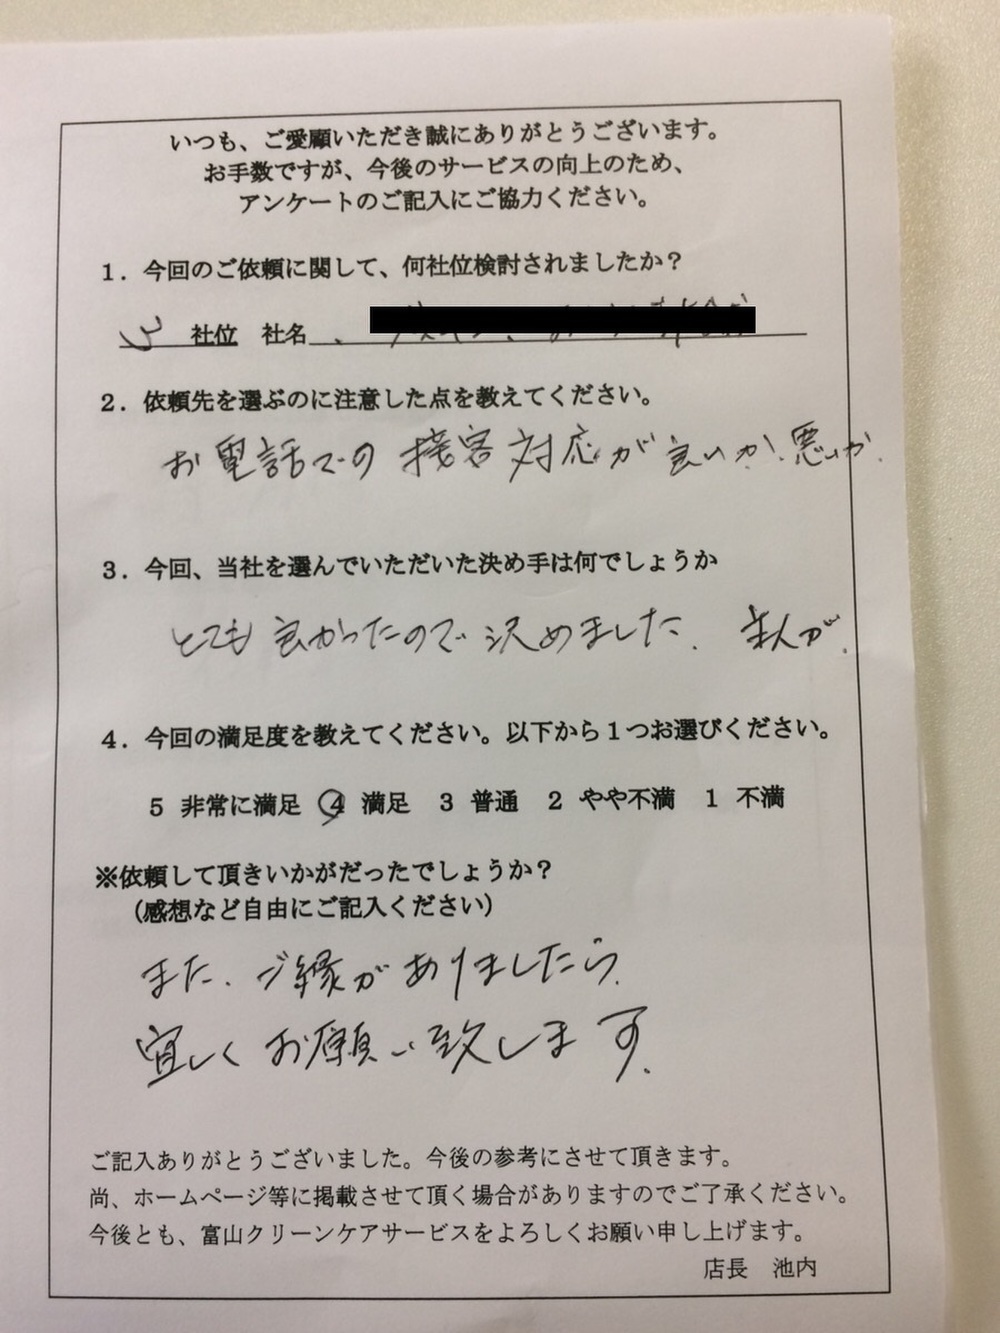 いつも、ご愛願いただき誠にありがとうございます。
お手数ですが、今後のサービスの向上のため、
アンケートのご記入にご協力ください。
1．今回のご依頼に関して、何社位検討されましたか？
3 社位 社名
2．依頼先を選ぶのに注意した点を教えてください。
お電話での 接客対応が良いか.悪いか.
3．今回、当社を選んでいただいた決め手は何でしょうか
とても良かったので決めました.
4．今回の満足度を教えてください。以下から１つお選びください。
5 非常に満足 4 満足 3 普通 2 やや不満 1 不満
※依頼して頂きいかがだったでしょうか？
（感想など自由にご記入ください）
また.ご縁がありましたら.
宜しくお願い致します.
ご記入ありがとうございました。今後の参考にさせて頂きます。
尚、ホームページ等に掲載させて頂く場合がありますのでご了承ください。
今後とも、富山クリーンケアサービスをよろしくお願い申し上げます。
店長 池内